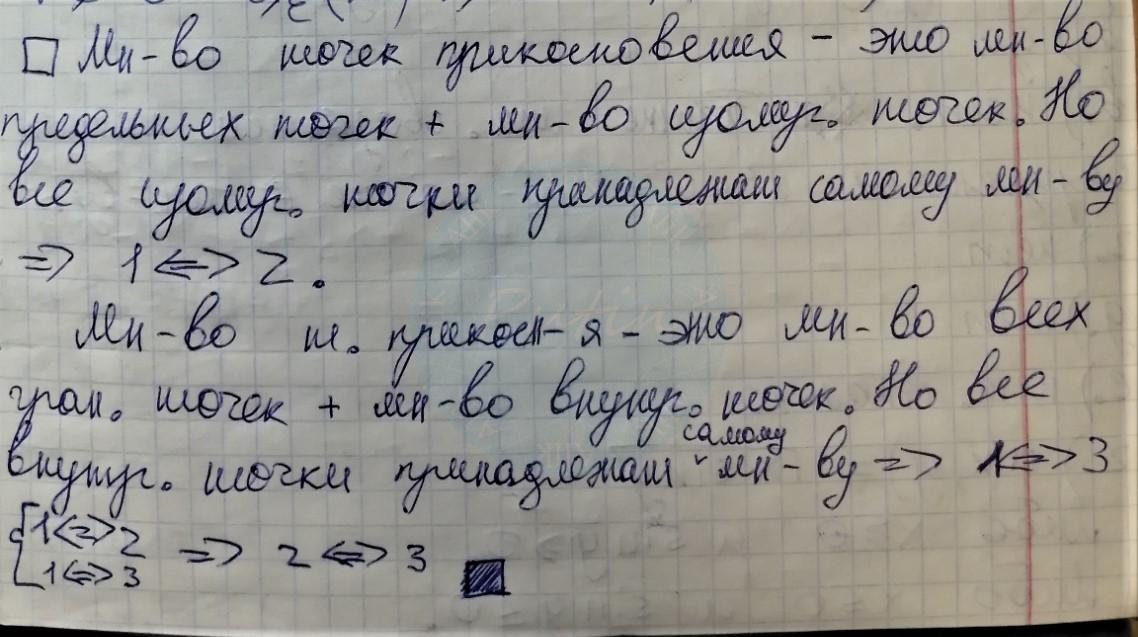 □ Мн-во точек прикосновения - это мн-во
предельных точек + мн-во изолир. точек. Но
все изолир. точки принадлежат самому мн-ву
=> 1 <=> 2.
Мн-во т. прикосн-я - это мн-во всех
гран. точек + мн-во внутр. точек. Но все
самому
внутр. точки принадлежат ˅ мн-ву => 1 <=> 3
{ 1 <=> 2
1 <=> 3 => 2 <=> 3 ■